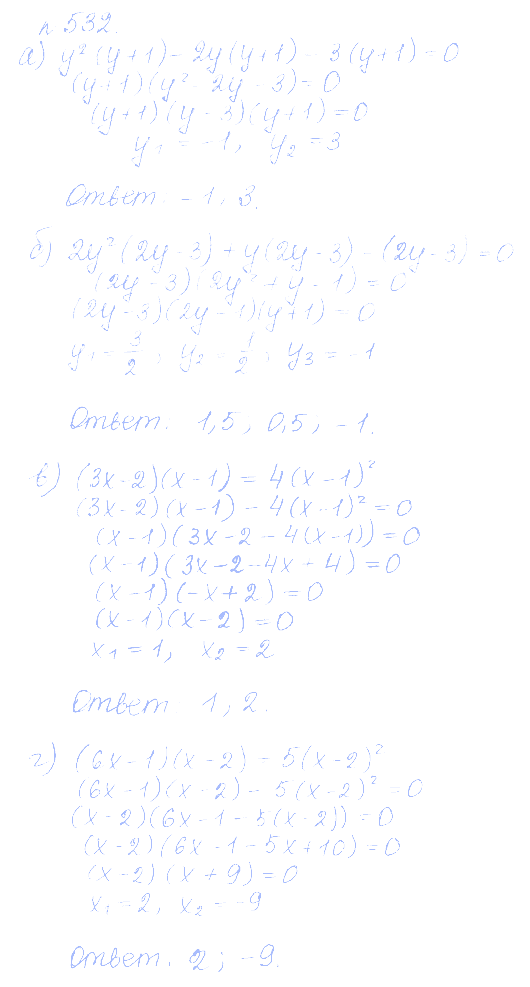 n 532.
а) y² (y+1) - 2y (y+1) - 3 (y+1) = 0
(y+1) (y² - 2y - 3) = 0
(y+1) (y - 3) (y+1) = 0
y₁ = -1, y₂ = 3
Ответ. -1, 3.
б) 2y² (2y-3) + y (2y-3) - (2y-3) = 0
(2y-3) (2y² + y - 1) = 0
(2y-3) (2y-1) (y+1) = 0
y₁ = 3/2 ; y₂ = 1/2 ; y₃ = -1
Ответ. 1,5 , 0,5 , -1.
в) (3x-2)(x-1) = 4(x-1)²
(3x-2)(x-1) - 4(x-1)² = 0
(x-1)(3x-2-4(x-1)) = 0
(x-1)(3x-2-4x+4) = 0
(x-1)(-x+2) = 0
(x-1)(x-2) = 0
x₁ = 1, x₂ = 2
Ответ 1, 2.
г) (6x-1)(x-2) - 5(x-2)²
(6x-1)(x-2) - 5(x-2)² = 0
(x-2)(6x-1-5(x-2)) = 0
(x-2)(6x-1-5x+10) = 0
(x-2) (x+9) = 0
x₁ = 2, x₂ = -9
Ответ. 2 ; -9.